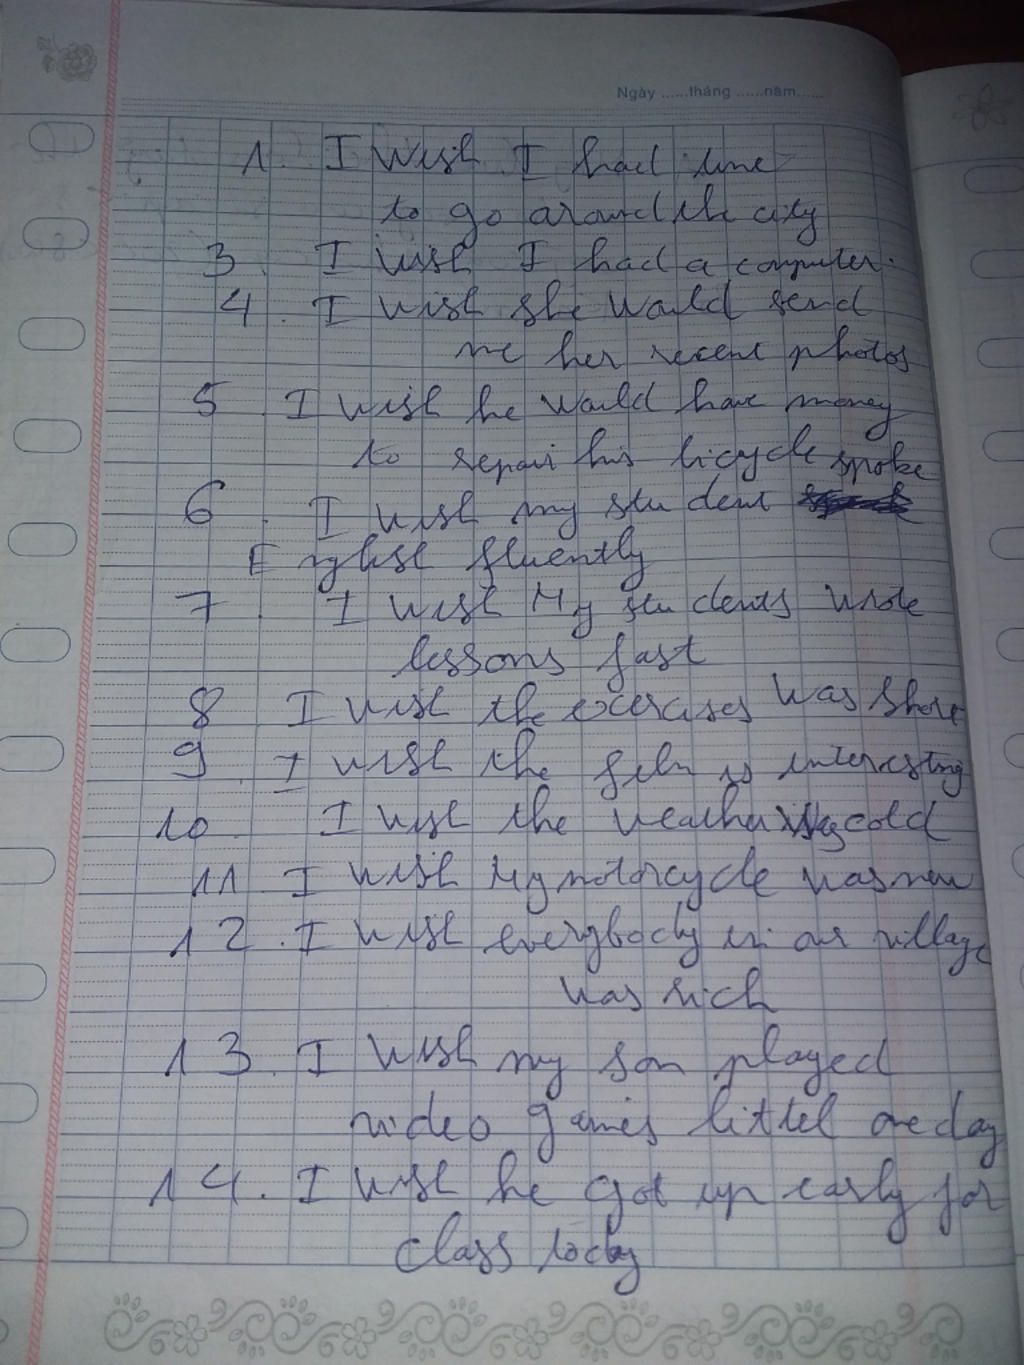 Ngày ......tháng ......năm......
1. I wish I had time
to go around the city
3. I wish I had a computer.
4. I wish she would send
me her recent photos
5 I wish he would have money
to repair his bicycle
6. I wish my student spoke
English fluently
7. I wish My students wrote
lessons fast
8 I wish the exercises was short
9. I wish the film is interesting
10. I wish the weather cold
11 I wish My motorcycle was new
12. I wish everybody in our village
was rich
13. I wish my son played
video games littel one day
14. I wish he got up early for
class today